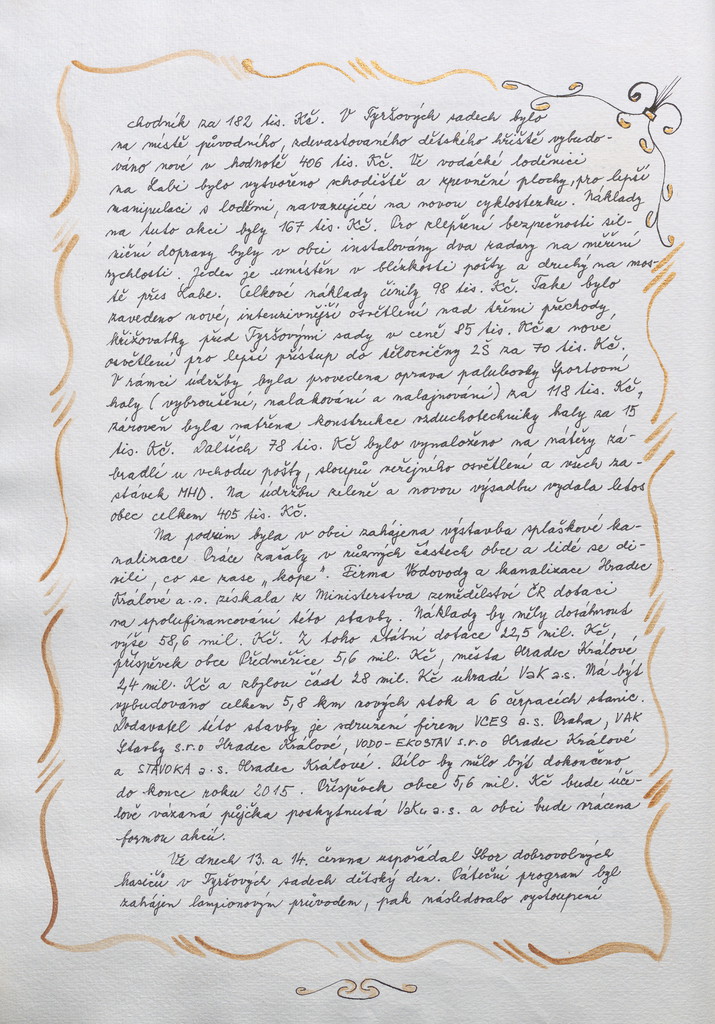 chodník za 182 tis. Kč. V Tyršových sadech bylo
na místě původního, zdevastovaného dětského hřiště vybudo-
váno nové v hodnotě 406 tis. Kč. Ve vodácké loděnici
na Labi bylo vytvořeno schodiště a zpevnění plochy, pro lepší
manipulaci s loděmi, navazující na novou cyklostezku. Náklady
na tuto akci byly 167 tis. Kč. Pro zlepšení bezpečnosti sil-
niční dopravy byly v obci instalovány dva radary na měření
rychlosti. Jeden je umístěn v blízkosti pošty a druhý na mos-
tě přes Labe. Celkové náklady činily 98 tis. Kč. Také bylo
zavedeno nové, intenzivnější osvětlení nad třemi přechody,
křižovatky před Tyršovými sady v ceně 85 tis. Kč a nové
osvětlení pro lepší přístup do tělocvičny ZŠ za 70 tis. Kč.
V rámci údržby byla provedena oprava palubovky Sportovní
haly (vybroušení, nalakování a nalajnování) za 118 tis. Kč,
zároveň byla natřena konstrukce vzduchotechniky haly za 15
tis. Kč. Dalších 78 tis. Kč bylo vynaloženo na nátěry zá-
bradlí u vchodu pošty, sloupů veřejného osvětlení a všech za-
stávek MHD. Na údržbu zeleně a novou výsadbu vydala letos
obec celkem 405 tis. Kč.
Na podzim byla v obci zahájena výstavba splaškové ka-
nalizace. Práce začaly v různých částech obce a lidé se di-
vili, co se zase „kope". Firma Vodovody a kanalizace Hradec
Králové a.s. získala z Ministerstva zemědělství ČR dotaci
na spolufinancování této stavby. Náklady by měly dosáhnout
výše 58,6 mil. Kč. Z toho státní dotace 22,5 mil. Kč,
příspěvek obce Předměřice 5,6 mil. Kč, města Hradec Králové
2,4 mil. Kč a zbylou část 28 mil. Kč uhradí VaK a.s. Má být
vybudováno celkem 5,8 km nových stok a 6 čerpacích stanic.
Dodavatel této stavby je sdružení firem VCES a.s. Praha, VAK
Stavby s.r.o Hradec Králové, VODO-EKOSTAV s.r.o Hradec Králové
a STAVOKA a.s. Hradec Králové. Dílo by mělo být dokončeno
do konce roku 2015. Příspěvek obce 5,6 mil. Kč bude úče-
lově vázaná půjčka poskytnutá VaKu a.s. a obci bude vrácena
formou akcií.
Ve dnech 13. a 14. června uspořádal Sbor dobrovolných
hasičů v Tyršových sadech dětský den. Páteční program byl
zahájen lampionovým průvodem, pak následovalo vystoupení